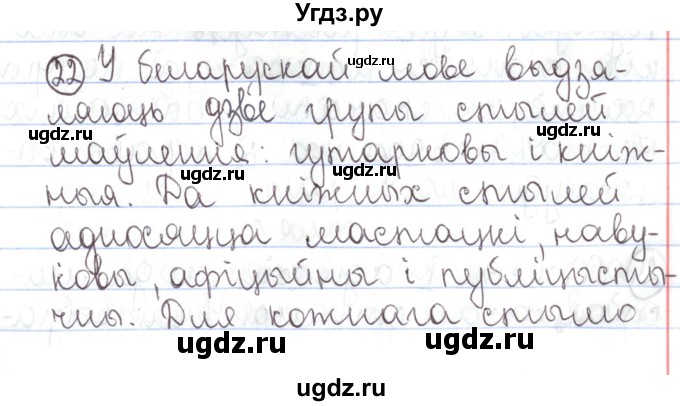 Угдз.ру
22 У беларускай мове выдзя-
ляюць дзве групы стылей
маўлення: гутарковы і кніж-
ныя. Да кніжных стылей
адносяцца мастацкі, наву-
ковы, афіцыйны і публіцысты-
чны. Для кожнага стылю
ugdz.ru
ugdz.ru
ugdz.ru
ugdz.ru
ugdz.ru
ugdz.ru
ugdz.ru
ugdz.ru
ugdz.ru
ugdz.ru